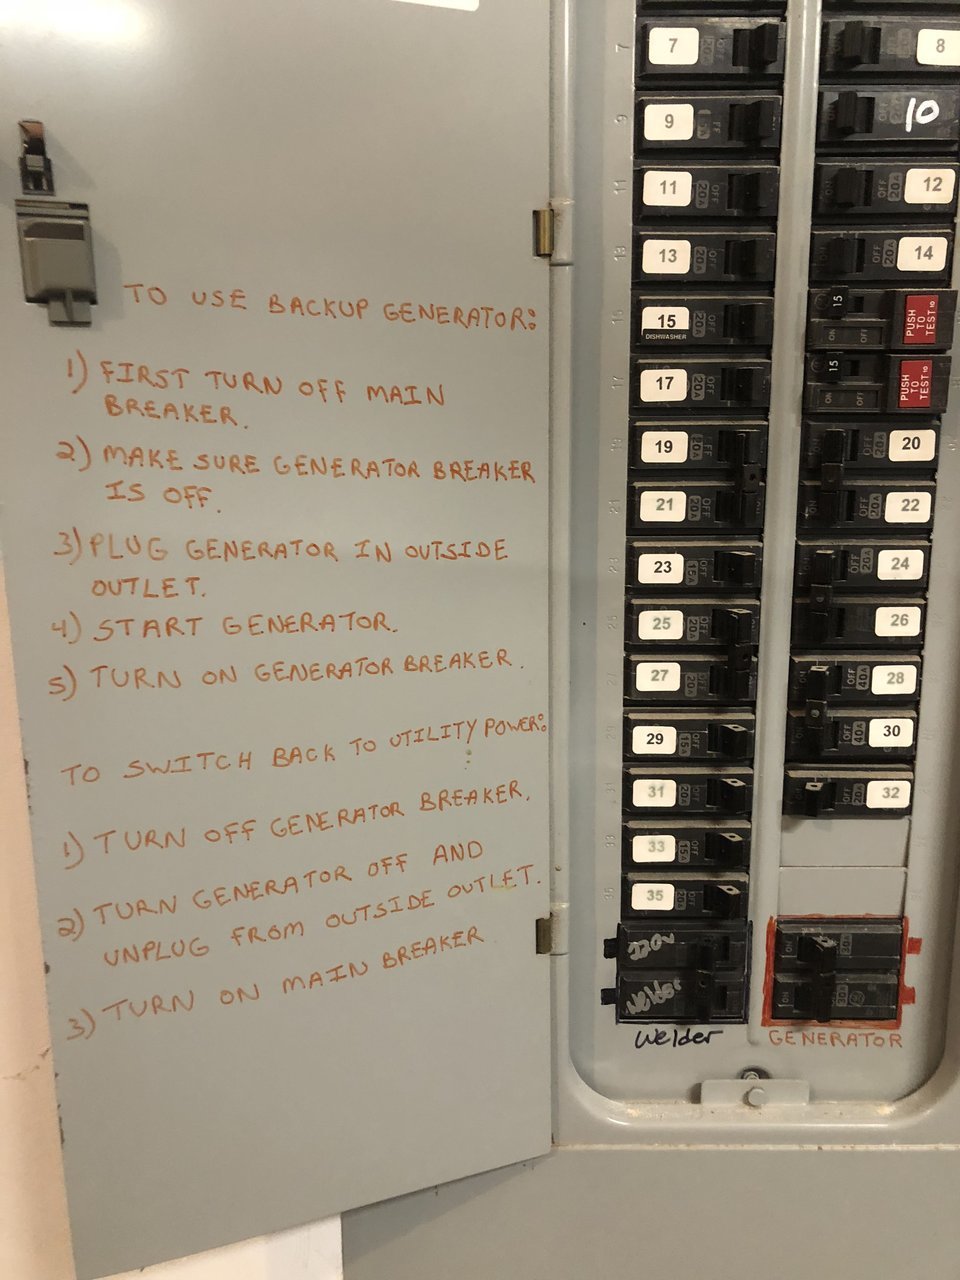 TO USE BACKUP GENERATOR:
1) FIRST TURN OFF MAIN
BREAKER.
2) MAKE SURE GENERATOR BREAKER
IS OFF.
3) PLUG GENERATOR IN OUTSIDE
OUTLET.
4) START GENERATOR.
5) TURN ON GENERATOR BREAKER.
TO SWITCH BACK TO UTILITY POWER:
1) TURN OFF GENERATOR BREAKER.
2) TURN GENERATOR OFF AND
UNPLUG FROM OUTSIDE OUTLET.
3) TURN ON MAIN BREAKER
7
8
9
10
11
12
13
14
15
DISHWASHER
15
PUSH TO TEST
17
15
PUSH TO TEST
19
20
21
22
23
24
25
26
27
28
29
30
31
32
33
35
Welder
Welder
GENERATOR